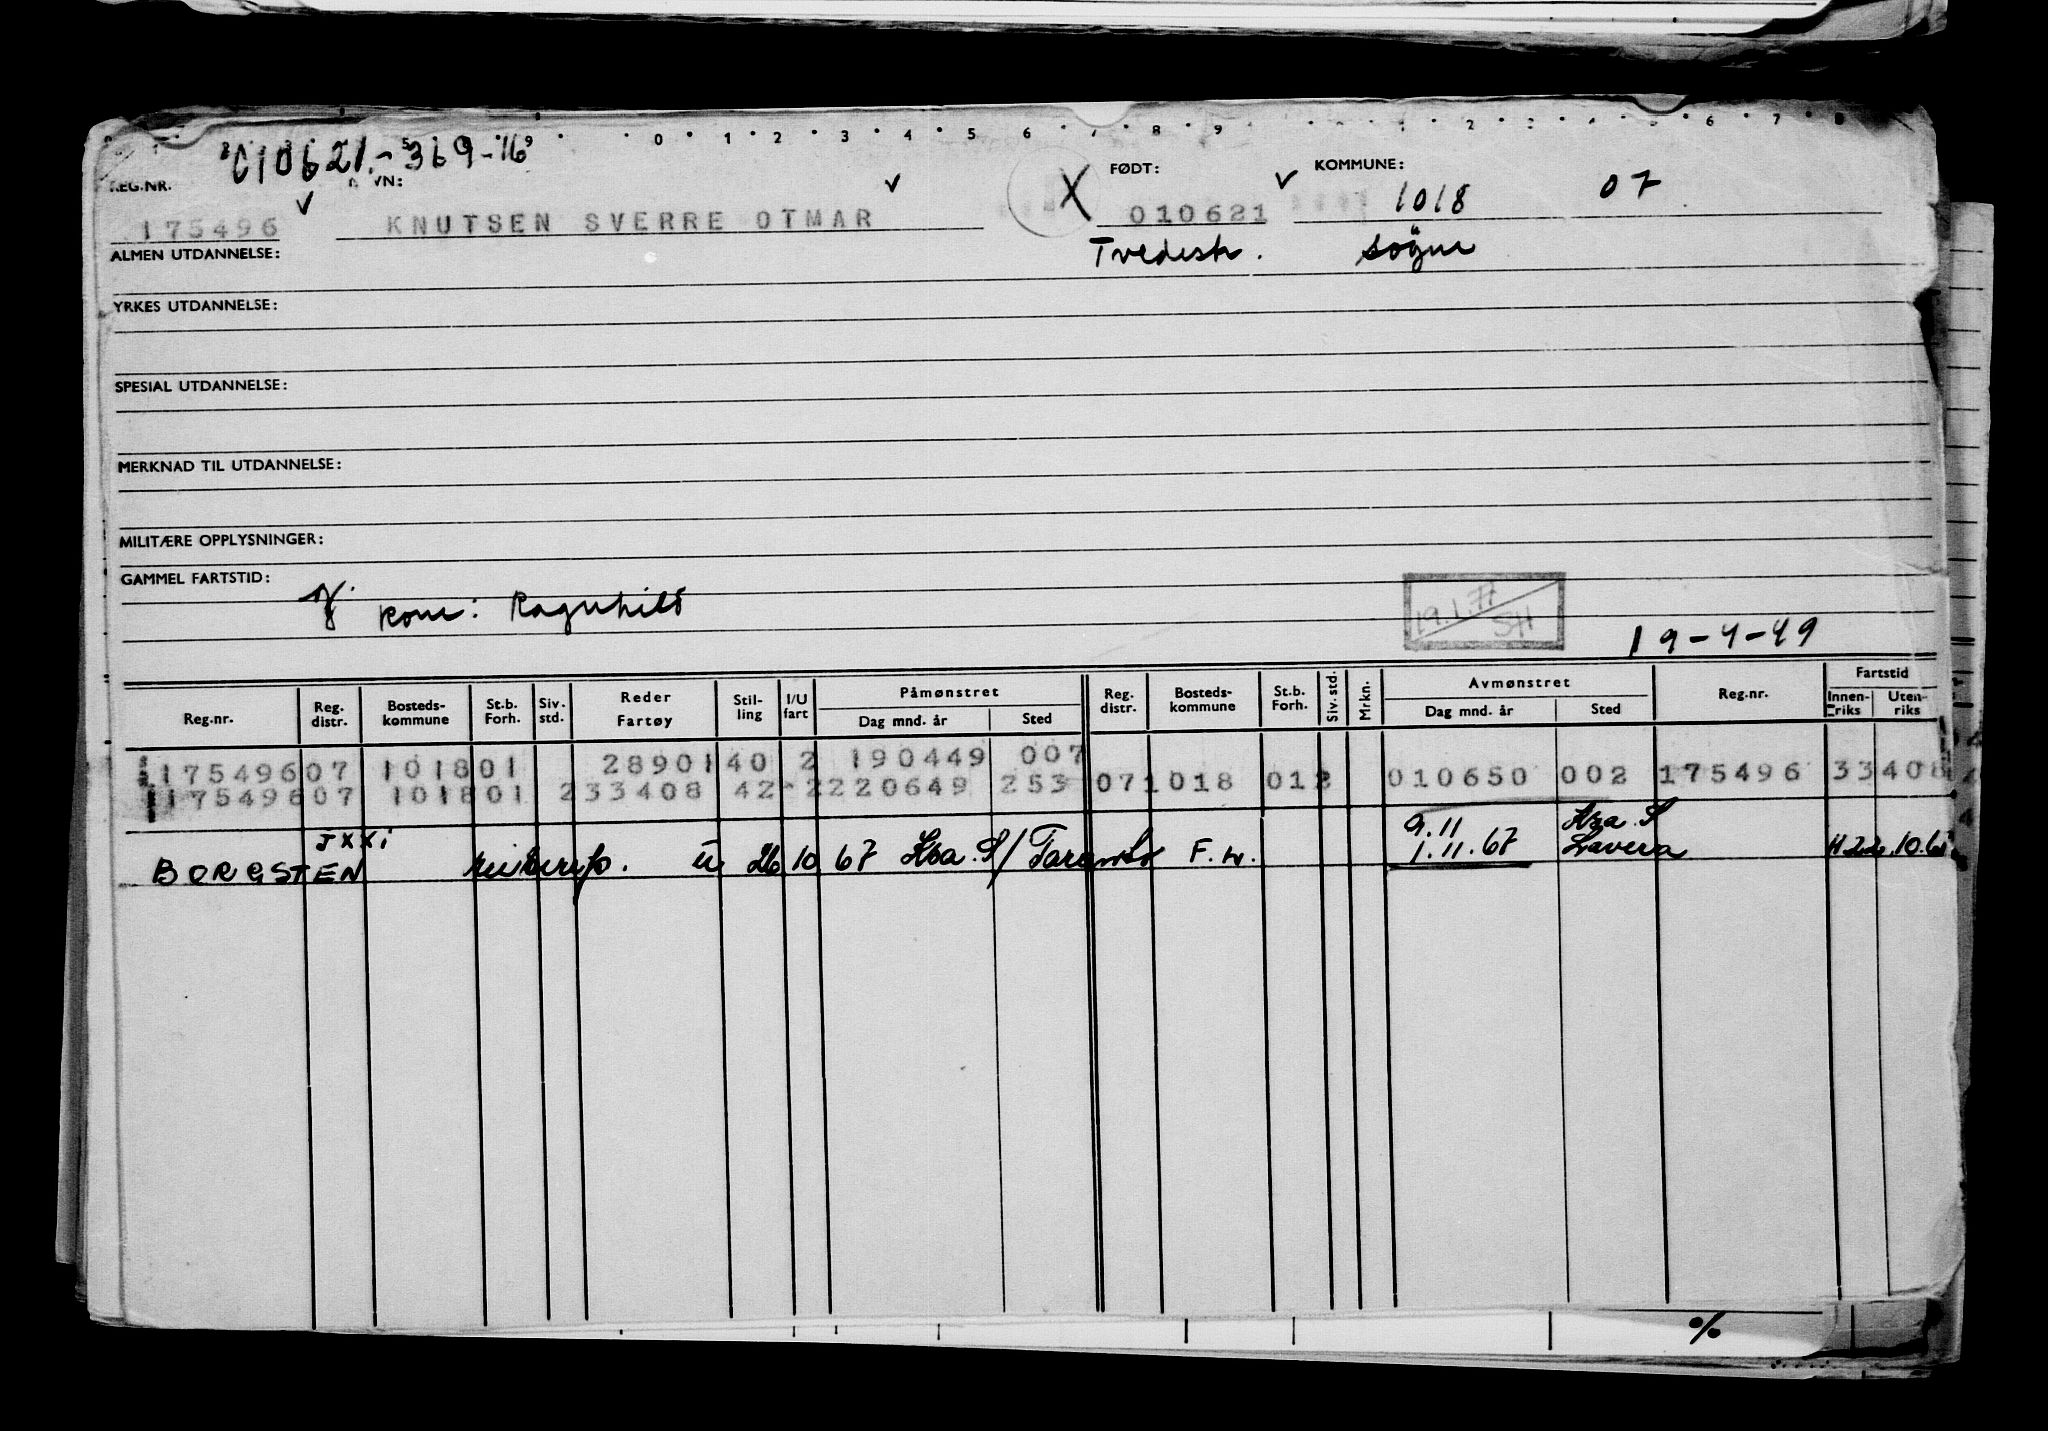 010621.-369-16
REG.NR. NAVN: FØDT: KOMMUNE:
175496 KNUTSEN SVERRE OTMAR X 010621 1018 07
ALMEN UTDANNELSE: Tvedestr. Søgne
YRKES UTDANNELSE:
SPESIAL UTDANNELSE:
MERKNAD TIL UTDANNELSE:
MILITÆRE OPPLYSNINGER:
GAMMEL FARTSTID:
kone: Ragnhild
19.1.77
SH
19-4-49
Reg.nr. Reg. distr. Bosteds- kommune St.b. Forh. Siv. std. Reder Fartøy Stil- ling I/U fart Påmønstret Dag mnd. år Sted Reg. distr. Bosteds- kommune St.b. Forh. Siv. std. Mrkn. Avmønstret Dag mnd. år Sted Reg.nr. Fartstid Innen- riks Uten- riks
175496 07 1018 01 28901 40 2 190449 007
175496 07 1018 01 233408 42 2 220649 253 07 1018 012 010650 002 175496 33 408
JXXi 9.11 Kra. S
BORGSTEN u 26 10 67 Kra. S/ Taranto F.W. 1.11.67 Lavera H 22.10.67
%